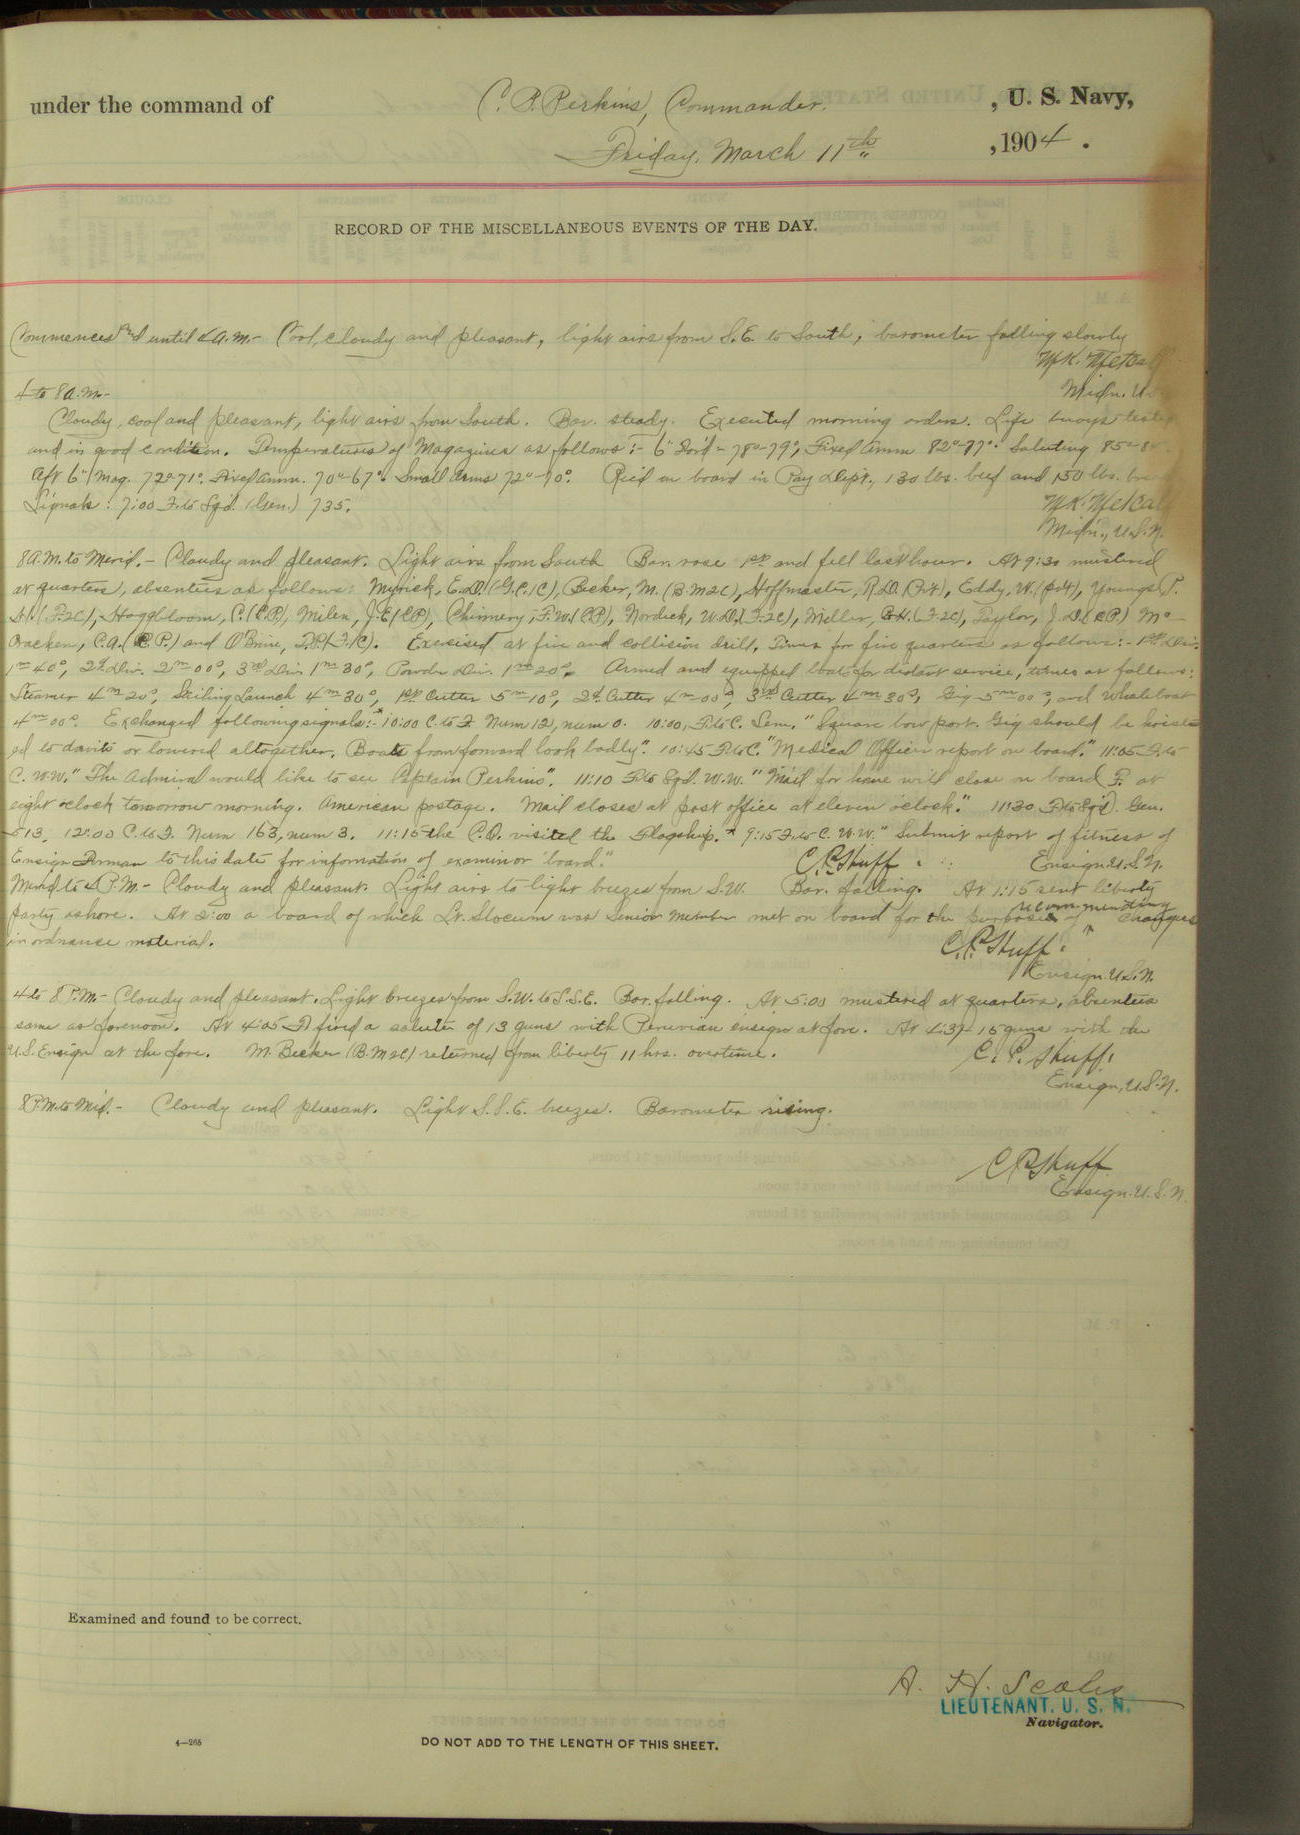 under the command of C. P. Perkins, Commander. , U. S. Navy,
Friday, March 11th , 1904 .
RECORD OF THE MISCELLANEOUS EVENTS OF THE DAY.
Commences and until 4 A.M.- Cool, cloudy and pleasant, light airs from S.E. to South; barometer falling slowly
W.K. Metcalf
Midn. U.S.
4 to 8 A.M.-
Cloudy, cool and pleasant, light airs from South. Bar. steady. Executed morning orders. Life buoys tested
and in good condition. Temperatures of Magazines as follows:- 6" For'd - 78°-79°, Fixed Amm 82°-87°. Saluting 85°-8
Aft 6" Mag. 72°-71°. Fixed Amm. 70°-67°. Small Arms 72°-70°. Rec'd on board in Pay Dept., 130 lbs. beef and 150 lbs. bread
Signals: 7:00 F. to Sqd. (Gen.) 735.
W.K. Metcalf
Midn., U.S.N.
8 A.M. to Merid.- Cloudy and pleasant. Light airs from South Bar. rose 1st and fell last hour. At 9:30 mustered
at quarters, absentees as follows: Myrick, E.D. (G.C.1C), Becker, M. (B.M2C), Hoffmaster, R.D. (Pvt), Eddy, W. (Pvt), Youngs, P.
H. (F.2C), Haggbloom, C. (C.P.), Milen, J.E. (C.P.), Chinnery, F.W. (C.P.), Nordick, W.D. (F.2C), Miller, G.H. (F.2C), Taylor, J.D. (C.P.) Mc-
Cracken, C.A. (C.P.) and O'Brine, T.P. (F.1C). Exercised at fire and collision drill. Times for fire quarters as follows:- 1st Div.
1m 40s, 2d Div. 2m 00s, 3rd Div. 1m 30s, Powder Div. 1m 20s. Armed and equipped boats for distant service, times as follows:
Steamer 4m 20s, Sailing Launch 4m 30s, 1st Cutter 5m 10s, 2d Cutter 4m 00s, 3rd Cutter 4m 30s, Gig 5m 00s, and Whaleboat
4m 00s. Exchanged following signals:-* 10:00 C. to F. Num 12, num 0. 10:00, F. to C. Sem. "Square bow port. Gig should be hoist-
ed to davits or lowered altogether. Boats from forward look badly." 10:45 F. to C. "Medical Officer report on board." 11:05 F. to
C. W.W. "The Admiral would like to see Captain Perkins". 11:10 F. to Sqd. W.W. "Mail for home will close on board F. at
eight o'clock tomorrow morning. American postage. Mail closes at post office at eleven o'clock." 11:30 F. to Sqd. Gen.
513. 12:00 C. to F. Num 163, num 3. 11:15 the C.O. visited the Flagship. * 9:15 F. to C. W.W. "Submit report of fitness of
Ensign to this date for information of examin or board."
C.P. Huff.
Ensign U.S.N.
Merid to 4 P.M.- Cloudy and pleasant. Light airs to light breezes from S.W. Bar. falling. At 1:15 sent liberty
party ashore. At 2:00 a board of which Lt. Slocum was Senior Member met on board for the purpose of recommending changes
in ordnance material.
C.P. Huff.
Ensign U.S.N.
4 to 8 P.M.- Cloudy and pleasant. Light breezes from S.W. to S.S.E. Bar. falling. At 5:00 mustered at quarters, absentees
same as forenoon. At 4:05 fired a salute of 13 guns with Peruvian ensign at fore. At 4:37 15 guns with the
U.S. Ensign at the fore. M. Becker (B.M2C) returned from liberty 11 hrs. overtime.
C. P. Huff.
Ensign, U.S.N.
8 P.M. to Mid.- Cloudy and pleasant. Light S.S.E. breezes. Barometer rising.
C P Huff
Ensign. U.S.N.
Examined and found to be correct.
A. H. Scales
LIEUTENANT. U. S. N.
Navigator.
4—265
DO NOT ADD TO THE LENGTH OF THIS SHEET.